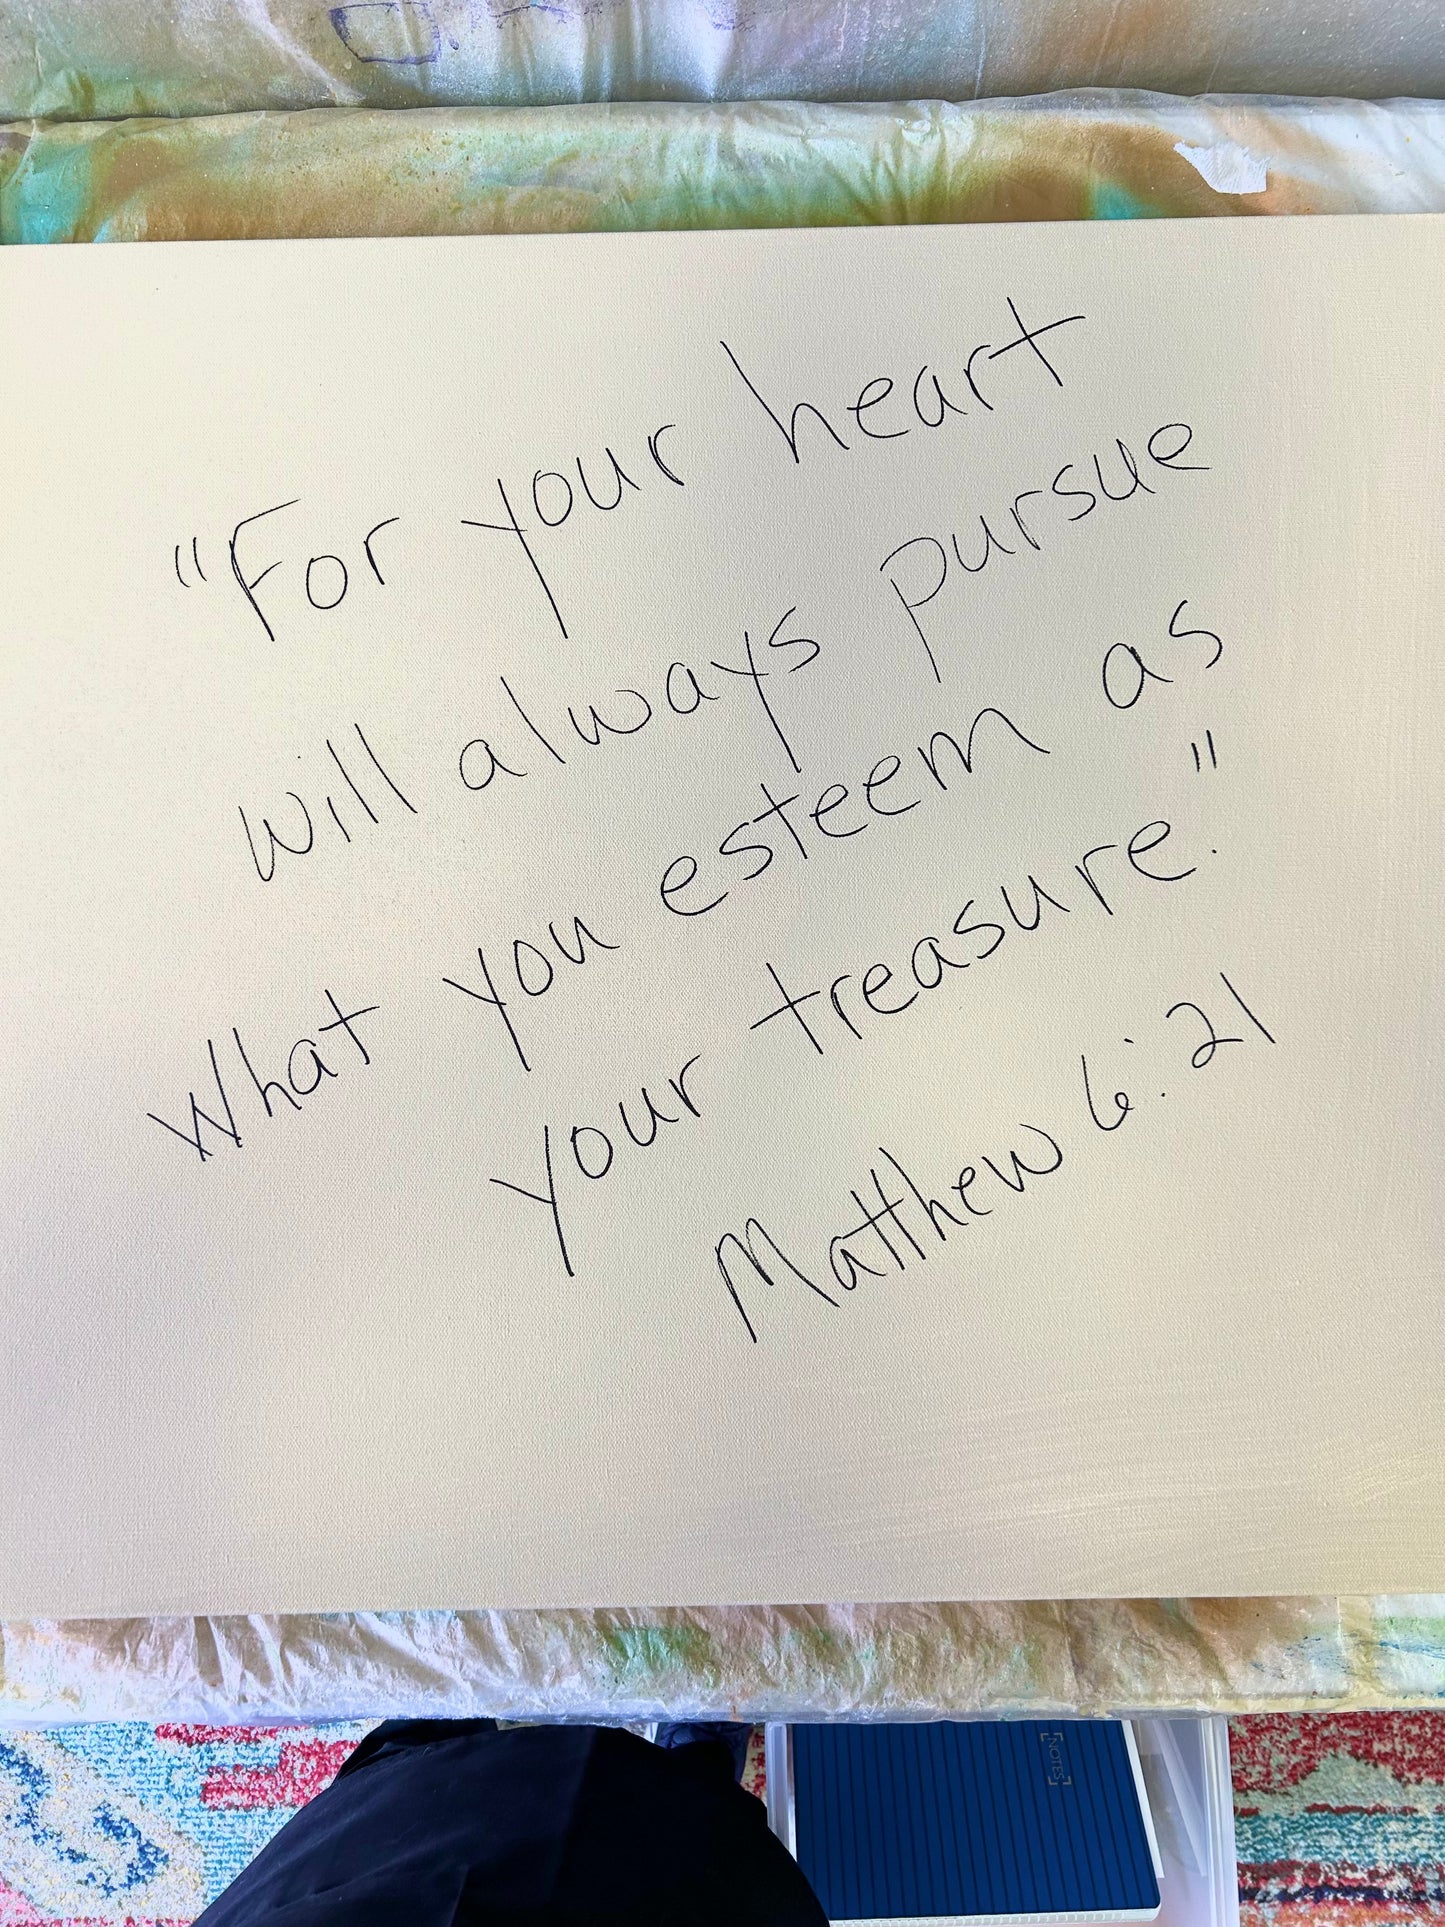 "For your heart
will always pursue
what you esteem as
your treasure."
Matthew 6:21
[NOTES]